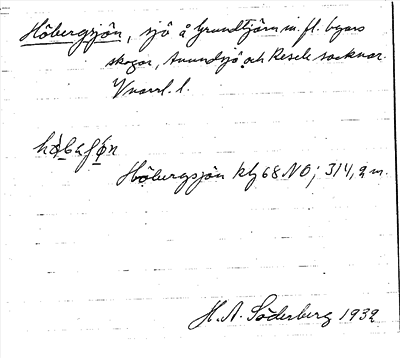 Höbergsjön, sjö å Grundtjärn m. fl. byars
skogar, Anundsjö och Resele socknar.
Vnorrl. l.
Höbergsjön kbl 68 NO; 314,2 m.
H. A. Söderberg 1932